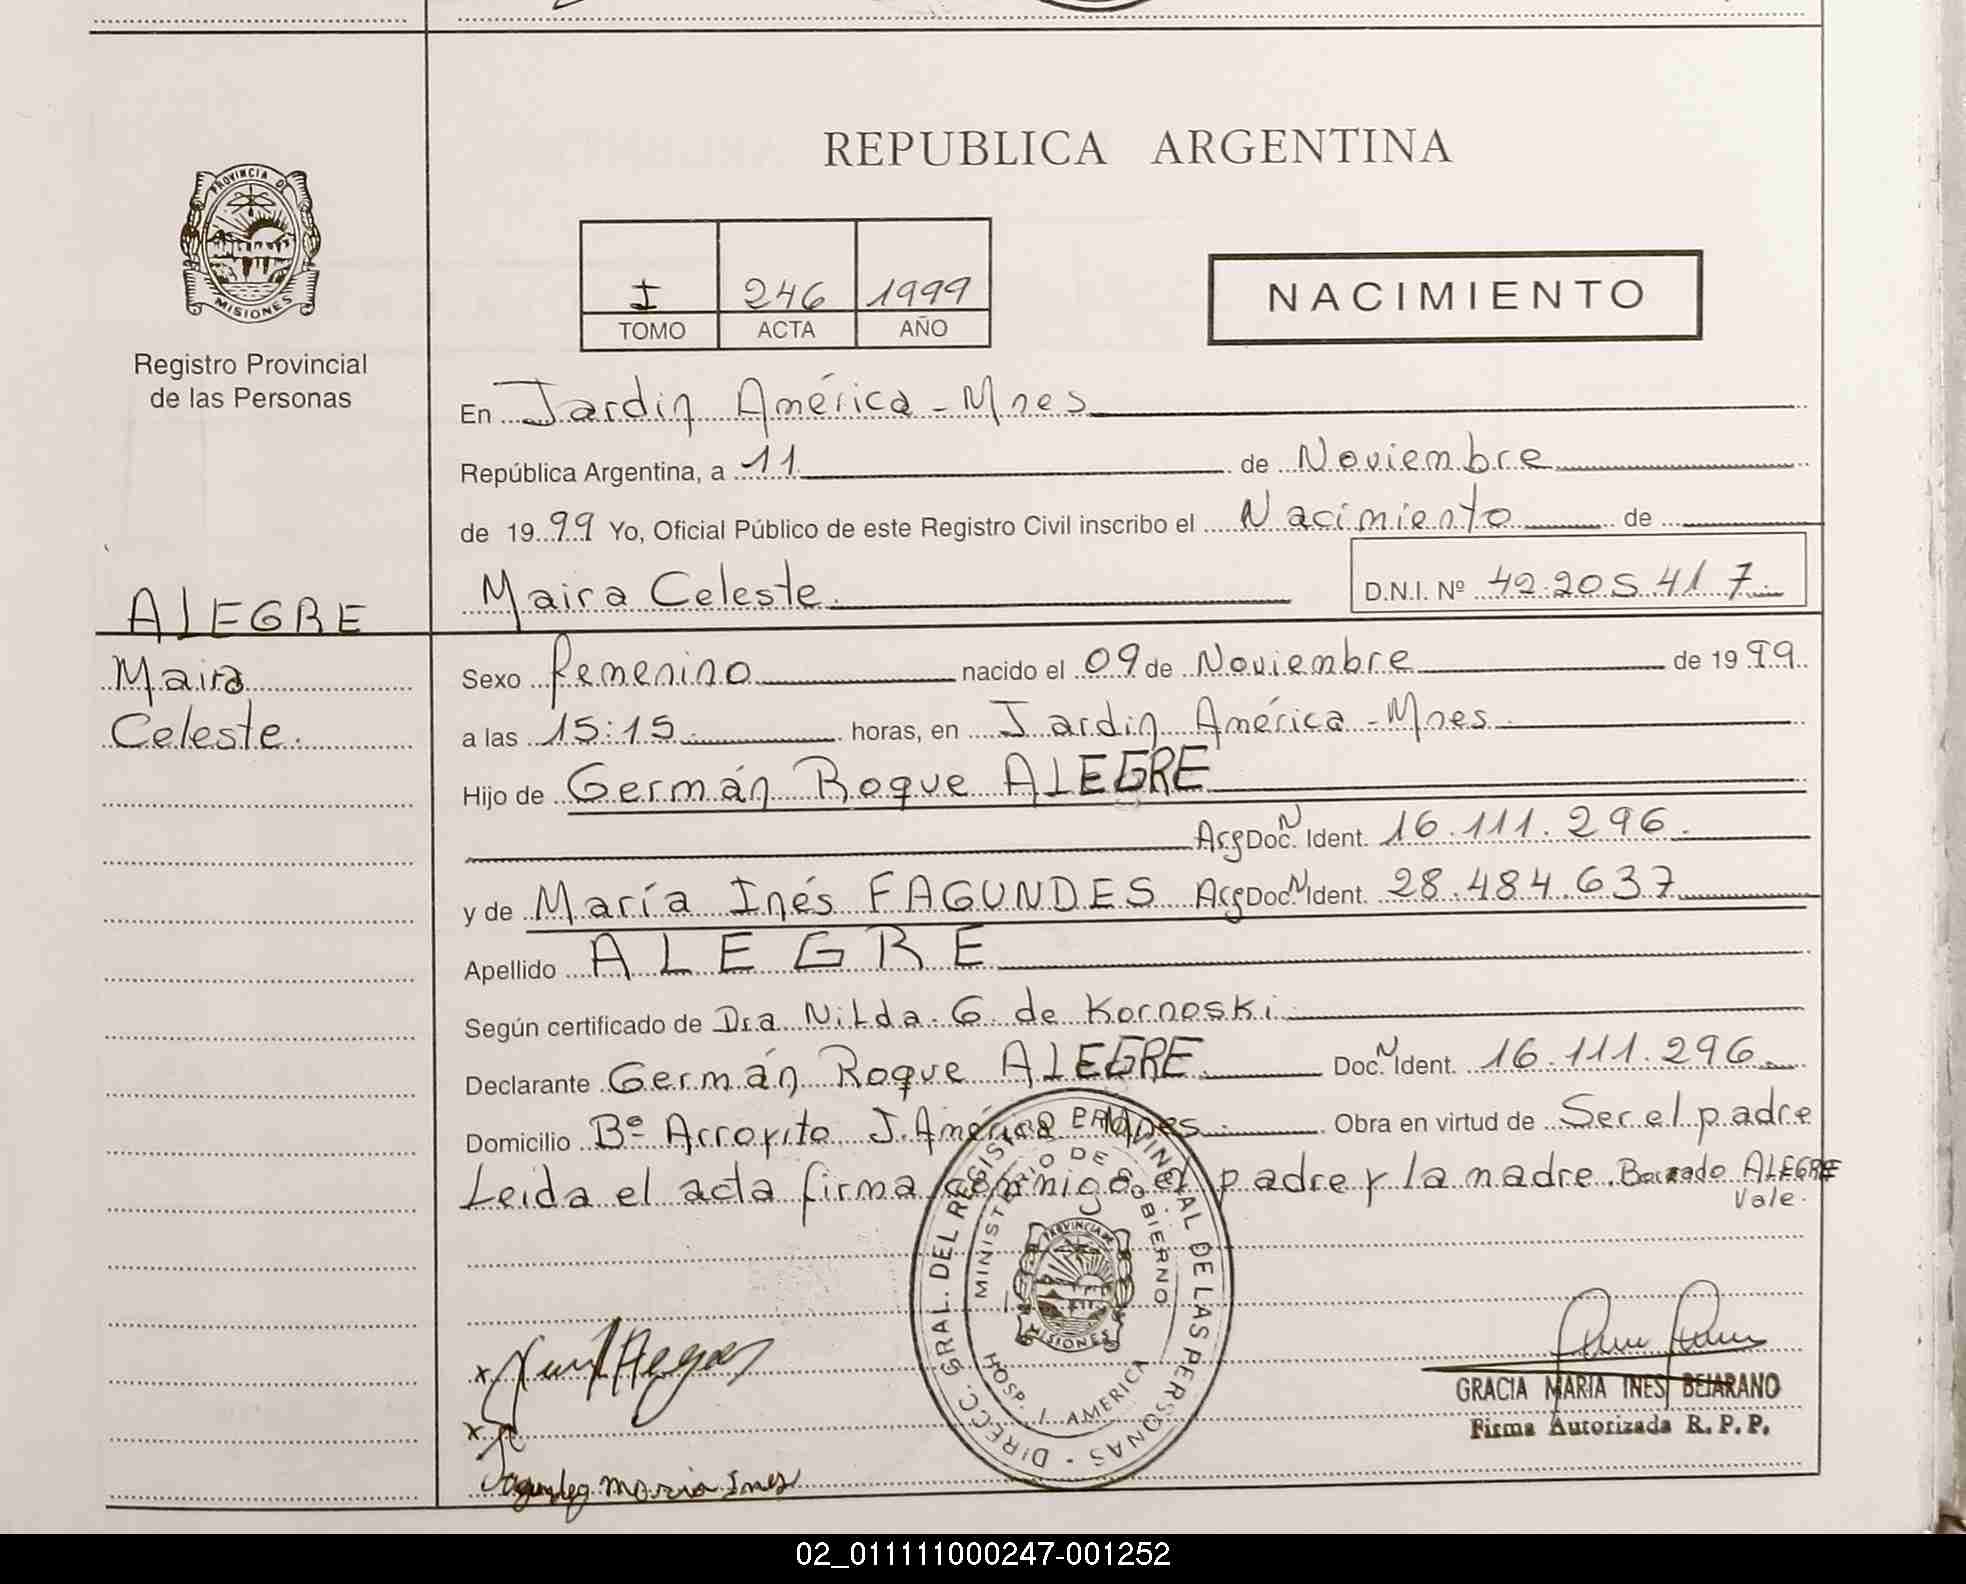 REPUBLICA ARGENTINA
PROVINCIA DE
MISIONES
Registro Provincial
de las Personas
I 246 1999
TOMO ACTA AÑO
NACIMIENTO
En Jardín América - Mnes
República Argentina, a 11 de Noviembre
de 1999 Yo, Oficial Público de este Registro Civil inscribo el Nacimiento de
Maira Celeste. D.N.I. Nº 42.205.417.-
ALEGRE
Maira
Celeste.
Sexo femenino nacido el 09 de Noviembre de 1999.
a las 15:15. horas, en Jardín América - Mnes.
Hijo de Germán Roque ALEGRE
Arg Doc. N Ident. 16.111.296.
y de María Inés FAGUNDES Arg Doc. N Ident. 28.484.637
Apellido ALEGRE
Según certificado de Dra Nilda G. de Kornoski.
Declarante Germán Roque ALEGRE Doc. N Ident. 16.111.296.
Domicilio Bº Arroyito J. América Mnes. Obra en virtud de Ser el padre
Leida el acta firma conmigo el padre y la madre. Borrado ALEGRE
Vale.
DIRECC. GRAL. DEL REGISTRO PROVINCIAL DE LAS PERSONAS
MINISTERIO DE GOBIERNO
PROVINCIA DE
MISIONES
HOSP. J. AMERICA
x
x
Fagundes Maria Ines
GRACIA MARIA INES BEJARANO
Firma Autorizada R. P. P.
02_011111000247-001252